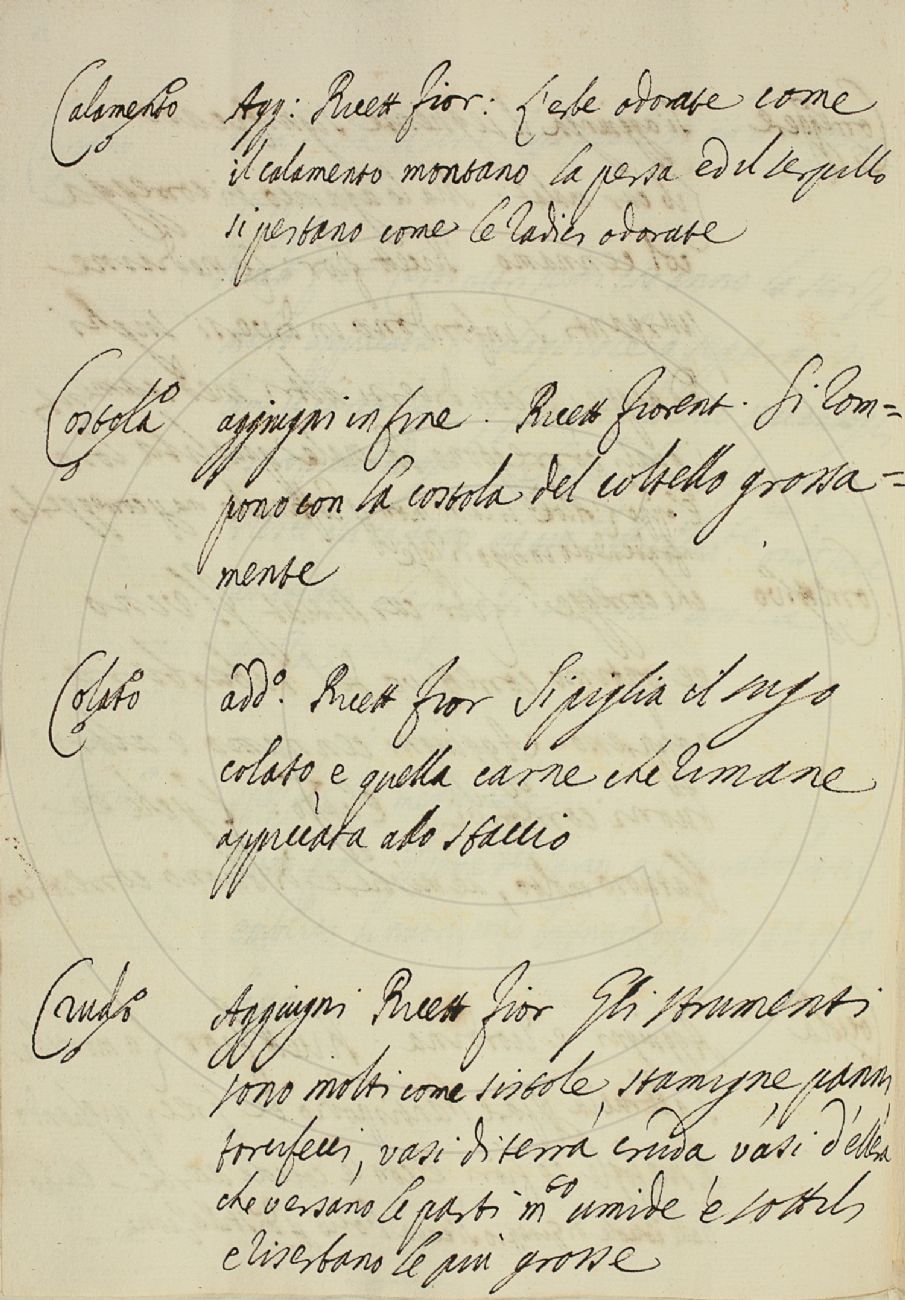 Calamento Agg: Ricett fior: L'erbe odorate come
il calamento montano la persa ed il serpillo
si pestano come le radici odorate
Costola aggiugni in fine. Ricett fiorent. Si rom=
pono con la costola del coltello grossa=
mente
Colato add.o Ricett fior Si piglia il sugo
colato, e quella carne che rimane
appiccata allo staccio
Crudo Aggiugni Ricett fior Gli strumenti
sono molti come sistole, stamigne, panni
torcifecci, vasi di terra cruda vasi d'ellera
che versano le parti umide e sottili
e riserbano le più grosse